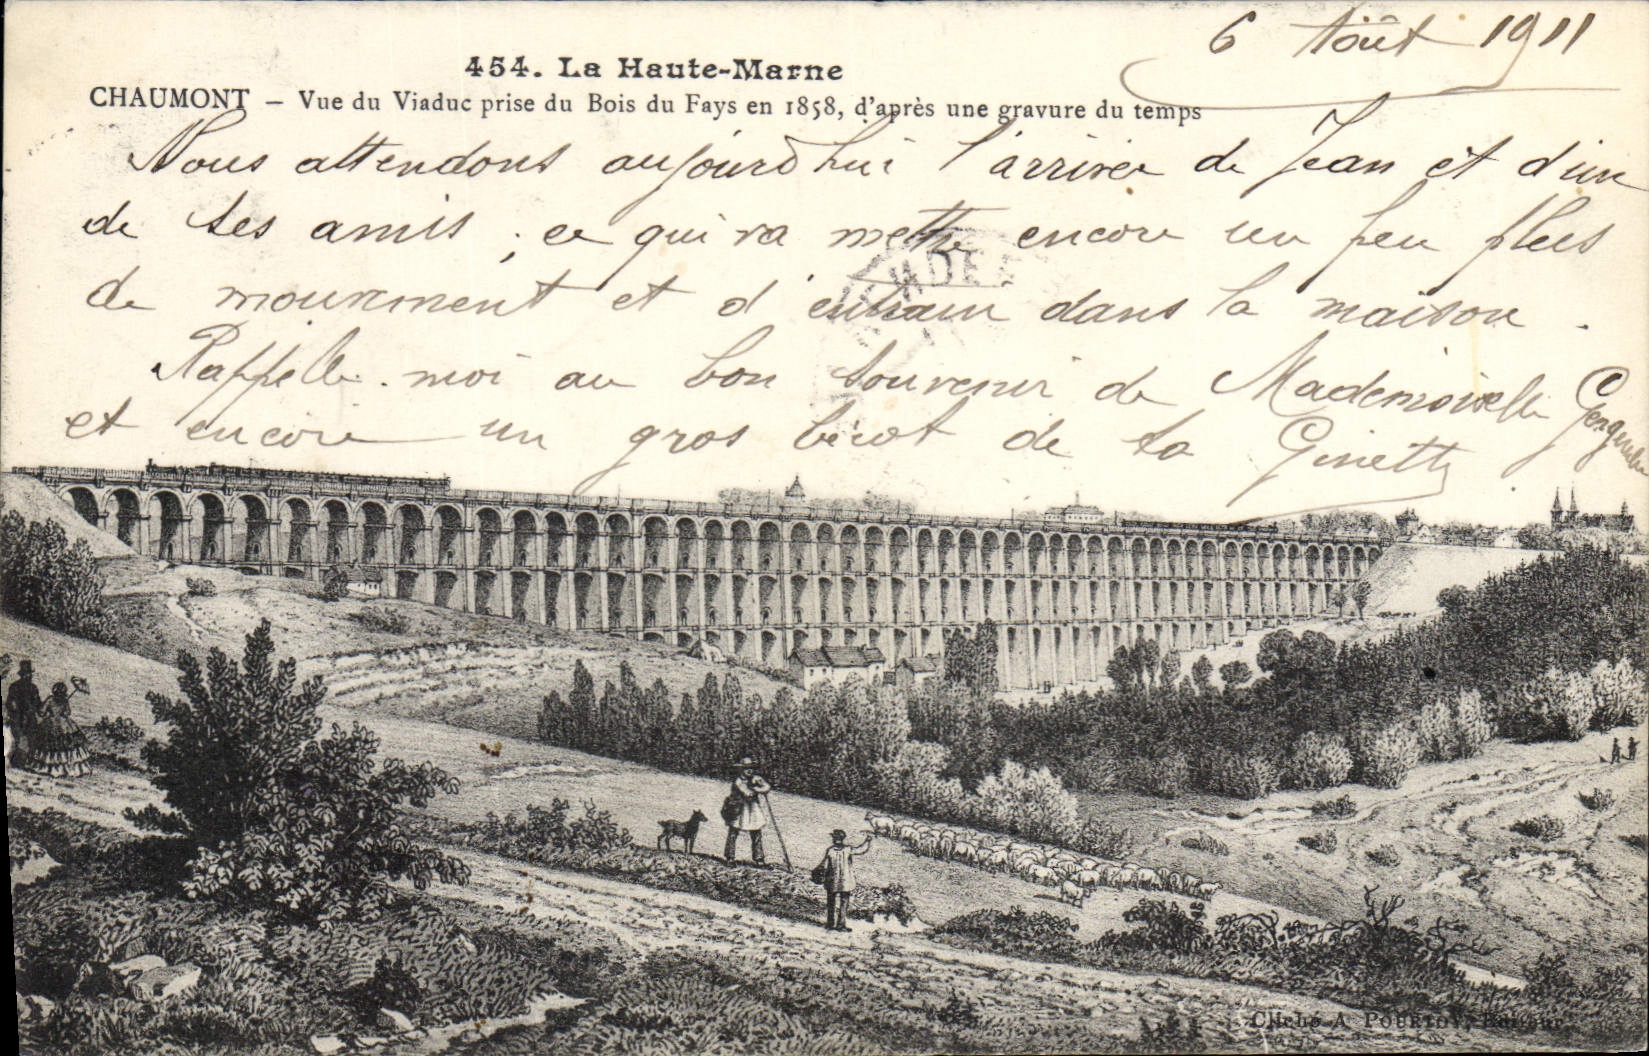 6 Août 1911
454. La Haute-Marne
CHAUMONT — Vue du Viaduc prise du Bois du Fays en 1858, d'après une gravure du temps
Nous attendons aujourd'hui l'arrivée de Jean et d'un
de ses amis ; ce qui va mettre encore un peu plus
de mouvement et d'entrain dans la maison.
Rappelle-moi au bon souvenir de Mademoiselle
et encore un gros bécot de ta Ginette
Cliché A. POURTOY, Editeur